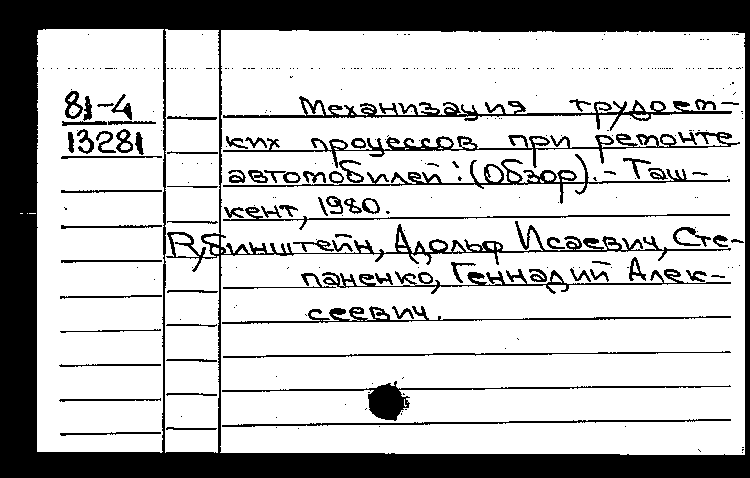 81-4
13281
Механизация трудоем-
ких процессов при ремонте
автомобилей : (Обзор). - Таш-
кент, 1980.
Рубинштейн, Адольф Исаевич, Сте-
паненко, Геннадий Алек-
сеевич.